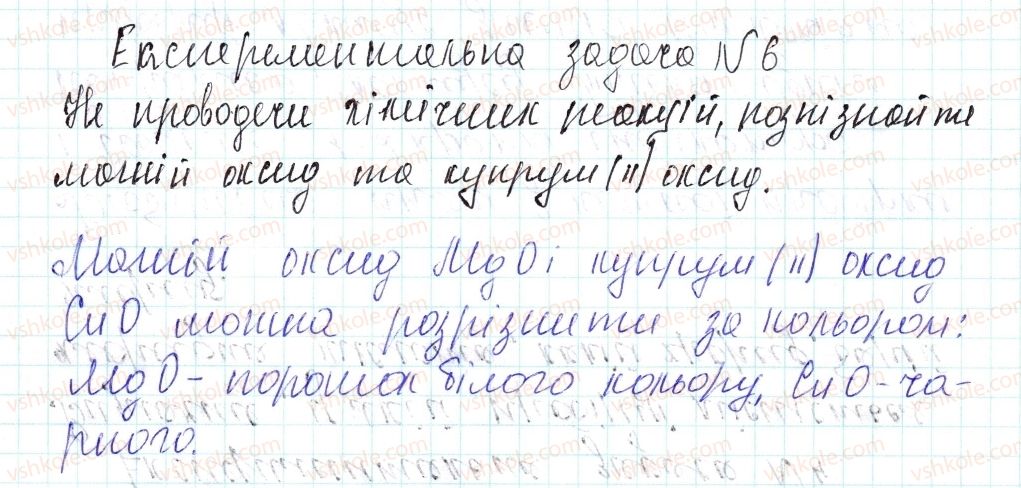 Експерементальна задача №6
Не проводячи хімічних реакцій, розпізнайте
магній оксид та купрум (II) оксид.
Магній оксид MgO і купрум (II) оксид
CuO можна розрізнити за кольором:
MgO - порошок білого кольору, CuO - чо-
рного.